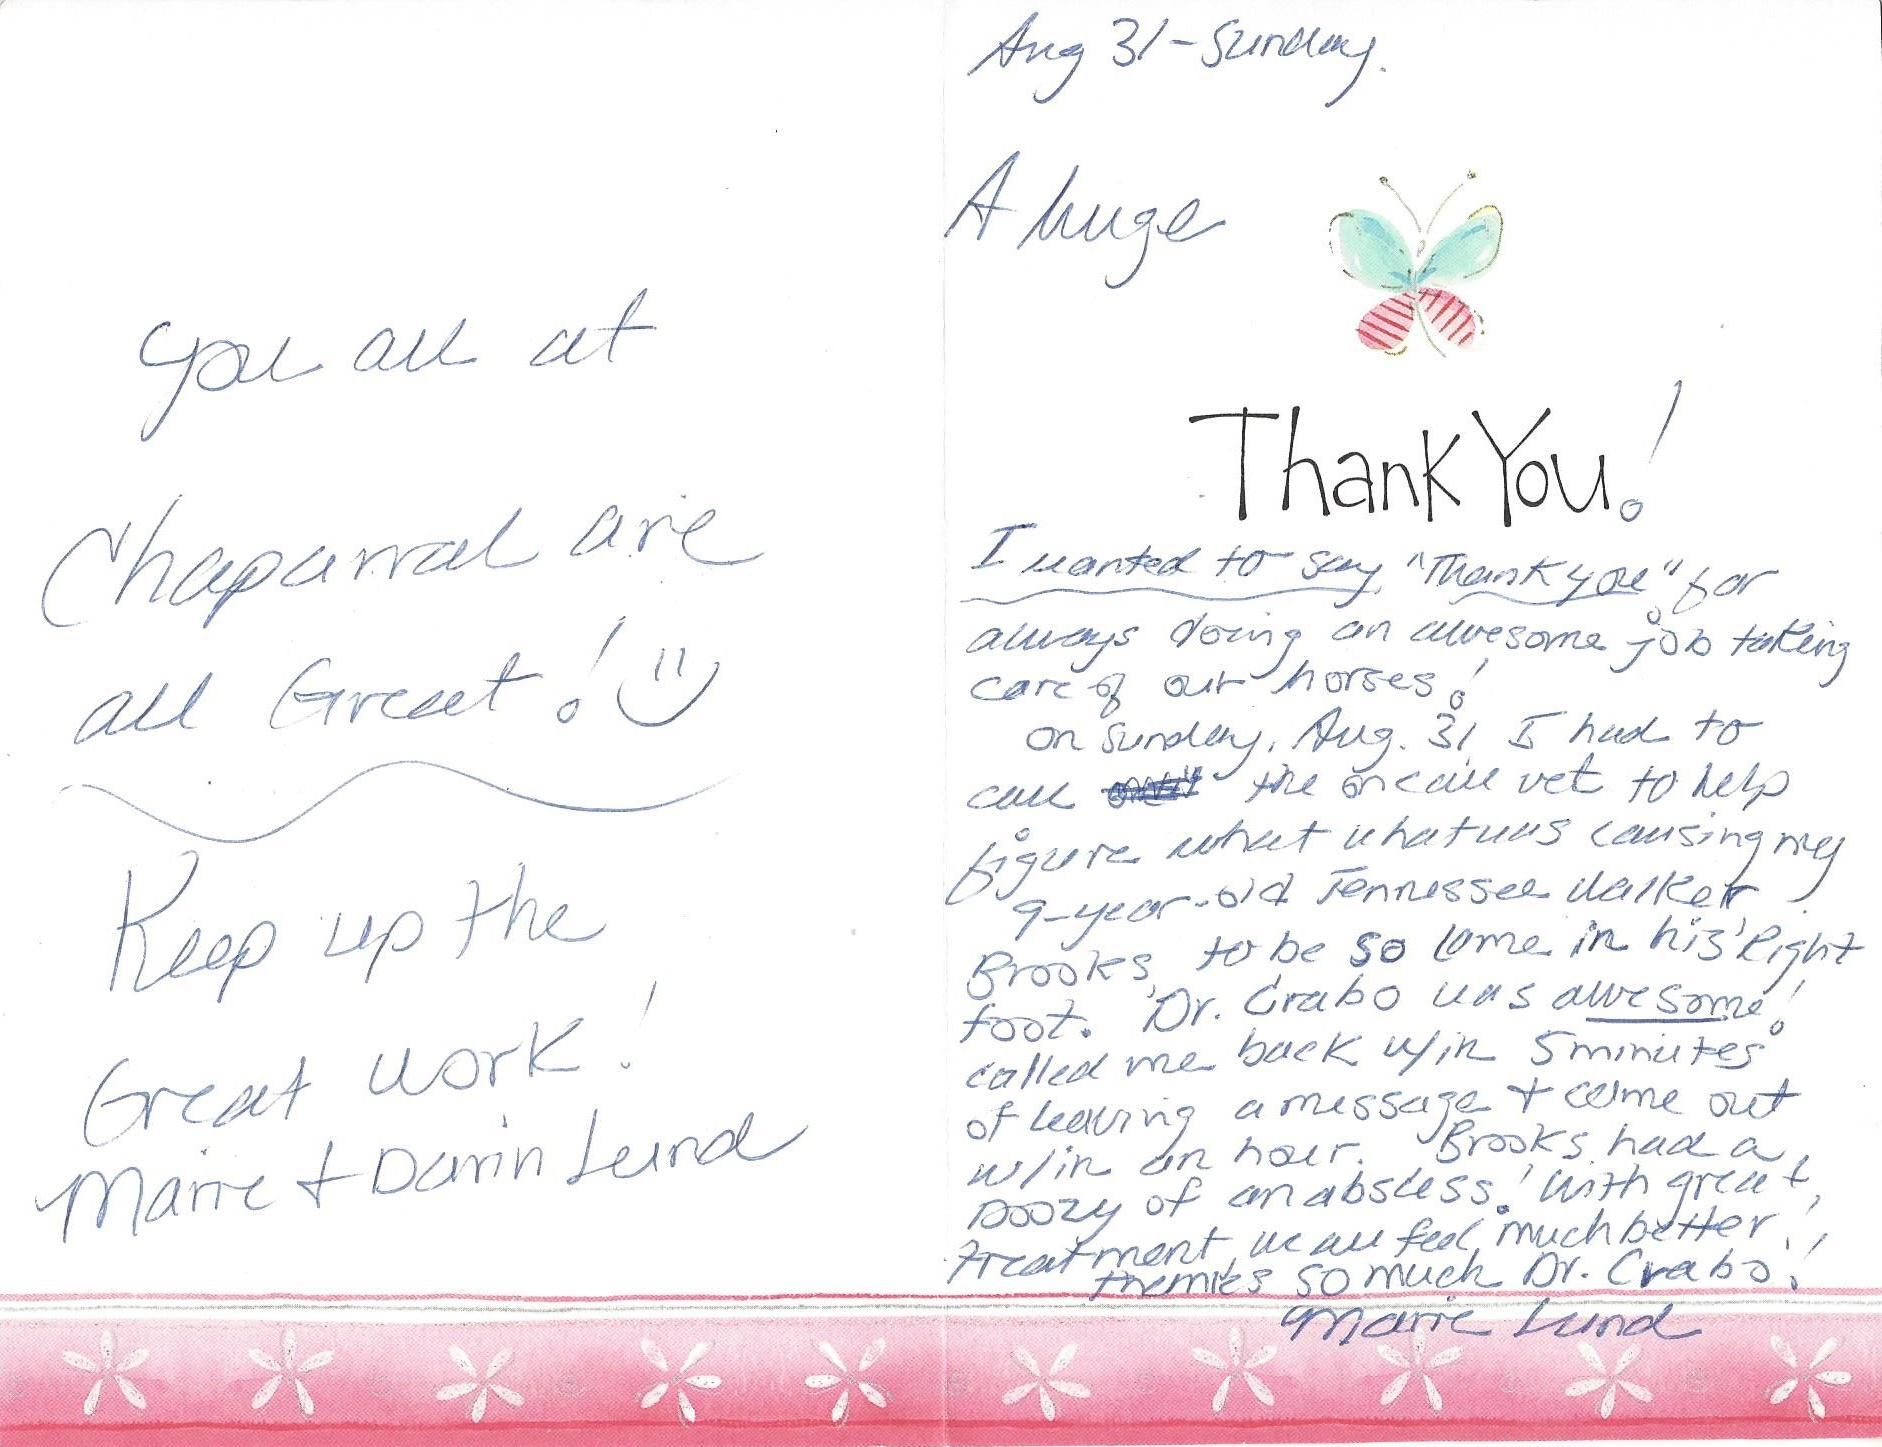 Aug 31 - Sunday.
A huge
Thank You!
I wanted to say "Thank you" for
always doing an awesome job taking
care of our horses!
On Sunday, Aug. 31 I had to
call the on call vet to help
figure what what was causing my
9-year-old Tennessee Walker
Brooks, to be so lame in his right
foot. Dr. Crabo was awesome!
called me back w/in 5 minutes
of leaving a message + came out
w/in an hour. Brooks had a
doozy of an abscess! With great
treatment we all feel much better!
so much Dr. Crabo!
Marie Lund
You all at
Chaparral are
all Great!
Keep up the
Great work!
Marie + Darin Lund